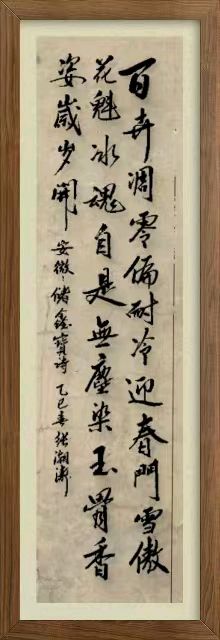 百卉凋零偏耐冷迎春門雪傲
花魁冰魂自是無塵染玉骨香
姿歲岁開 安徽儲鑫寶詩 乙巳春張